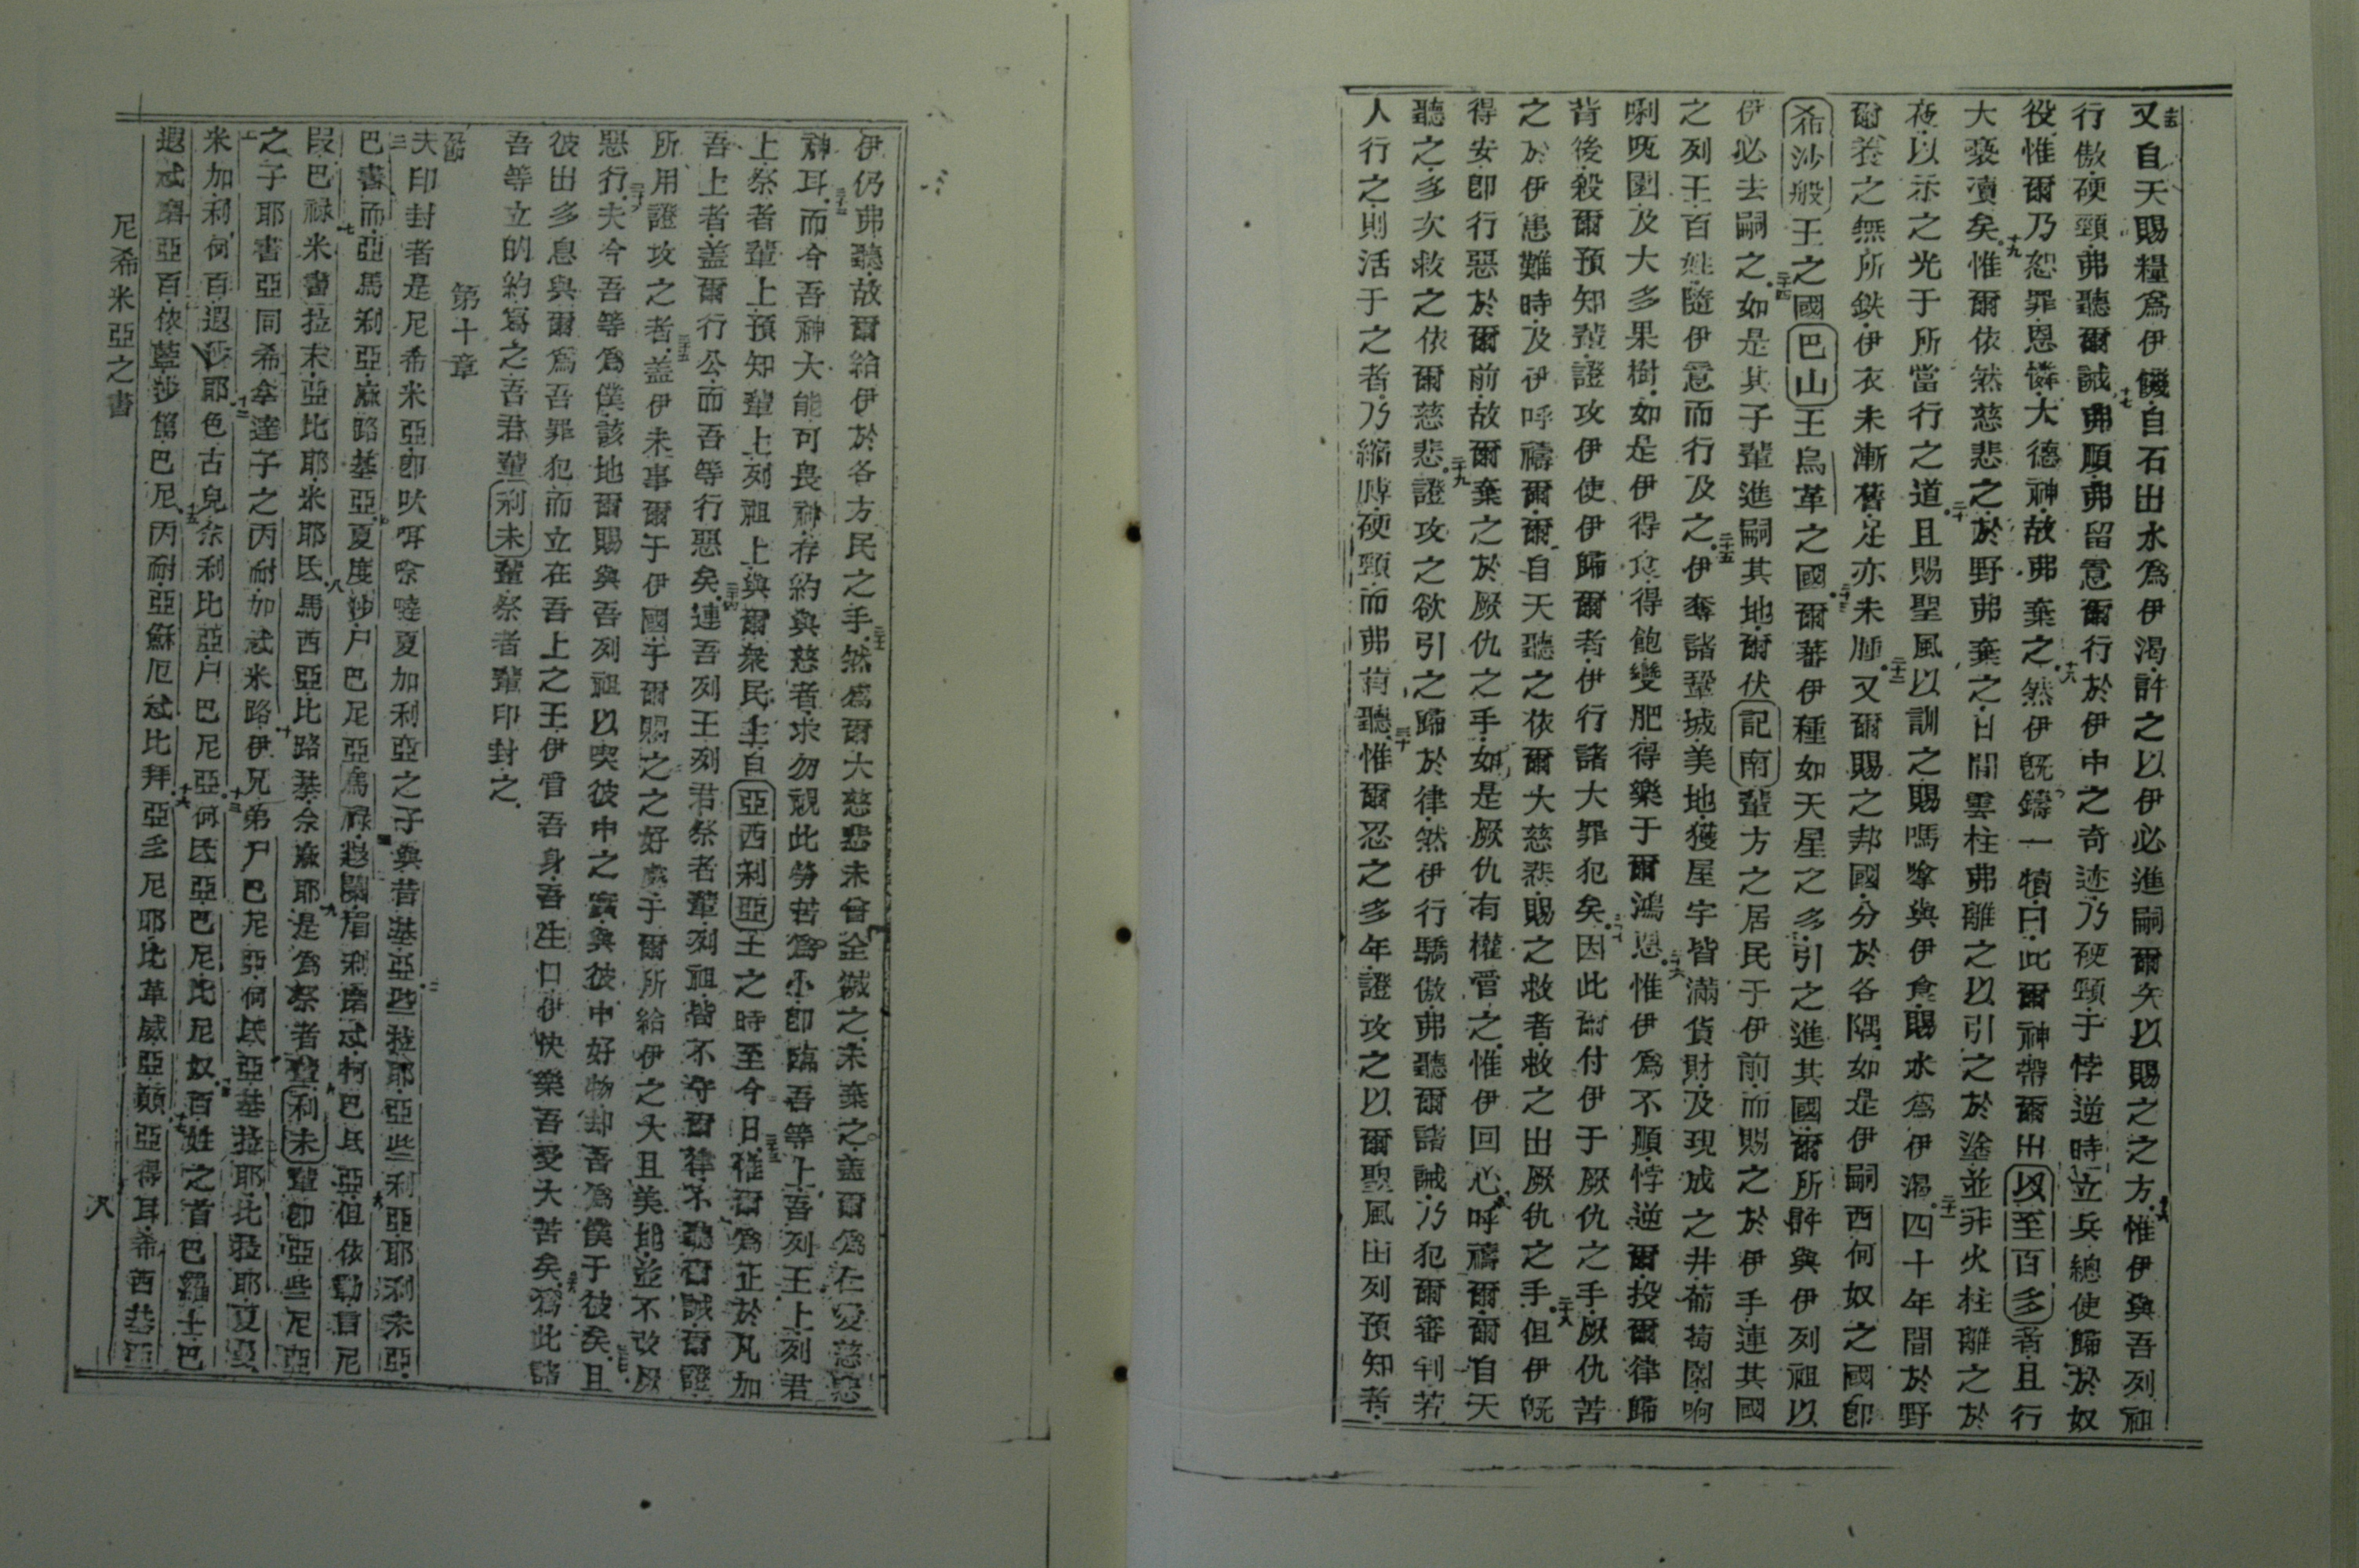 又自天賜糧爲伊饑自石出水爲伊渴許之以伊必進嗣爾矢以賜之之方惟伊與吾列祖
行傲硬頸弗聽爾誡弗順弗留意爾行於伊中之奇迹乃硬頸于悖逆時立兵總使歸於奴
役惟爾乃恕罪恩憐大德神故弗棄之然伊旣鑄一犢曰此爾神帶爾出以至百多者且行
大褻凟矣惟爾依然慈悲之於野弗棄之日間雲柱弗離之以引之於塗並非火柱離之於
夜以示之光于所當行之道且賜聖風以訓之賜嗎嗱與伊食賜水爲伊渴四十年間於野
爾養之無所鈌伊衣未漸舊足亦未腫又爾賜之邦國分於各隅如是伊嗣西何奴之國卽
希沙般王之國巴山王烏革之國爾蕃伊種如天星之多引之進其國爾所許與伊列祖以
伊必去嗣之如是其子輩進嗣其地爾伏記南輩方之居民于伊前而賜之於伊手連其國
之列王百姓隨伊意而行及之伊奪諸鞏城美地獲屋宇皆滿貨財及現成之井葡萄園啊
唎旣園及大多果樹如是伊得食得飽變肥得樂于爾鴻恩惟伊爲不順悖逆爾投爾律歸
背後殺爾預知輩證攻伊使伊歸爾者伊行諸大罪犯矣因此爾付伊于厥仇之手厥仇苦
之於伊患難時及伊呼禱爾爾自天聽之依爾大慈悲賜之救者救之出厥仇之手但伊旣
得安卽行惡於爾前故爾棄之於厥仇之手如是厥仇有權管之惟伊回心呼禱爾爾自天
聽之多次救之依爾慈悲證攻之欲引之歸於律然伊行驕傲弗聽爾諸誡乃犯爾審判若
人行之則活于之者乃縮膊硬頸而弗肯聽惟爾忍之多年證攻之以爾聖風由列預知者
伊仍弗聽故爾給伊於各方民之手然爲爾大慈悲未曾全滅之未棄之蓋爾爲仁愛慈悲
神耳而今吾神大能可畏神存約與慈者求勿視此勞苦爲小卽臨吾等上吾列王上列君
上祭者輩上預知輩上列祖上與爾衆民上自亞西利亞王之時至今日惟爾爲正於凡加
吾上者蓋爾行公而吾等行惡矣連吾列王列君祭者輩列祖皆不守爾律不聽爾誡爾證
所用證攻之者蓋伊未事爾于伊國于爾賜之之好處于爾所給伊之大且美地並不改厥
惡行夫今吾等爲僕該地爾賜與吾列祖以喫彼中之實與彼中好物却吾爲僕于彼矣且
彼出多息與爾爲吾罪犯而立在吾上之王伊管吾身吾牲口伊快樂吾受大苦矣爲此諸
吾等立的約寫之吾君輩利未輩祭者輩印封之
第十章
夫印封者是尼希米亞卽吠咡唦噠夏加利亞之子與昔基亞些拉耶亞些利亞耶利未亞
巴書而亞馬利亞麻路基亞夏度沙尸巴尼亞馬祿夏闌眉利磨忒柯巴氐亞但依勒官尼
段巴祿米書拉末亞比耶米耶民馬西亞比路基佘麻耶是爲祭者輩利未輩卽亞些尼亞
之子耶書亞同希拿達子之丙耐加忒米路伊兄弟尸巴尼亞何氐亞基拉耶比拉耶夏曼
米加利何百遐沙耶色古兒佘利比亞尸巴尼亞何氐亞巴尼比尼奴百姓之首巴羅士巴
遐忒磨亞百依藍沙篤巴尼丙耐亞穌厄忒比拜亞多尼耶比革威亞顛亞得耳希西基亞
尼希米亞之書
八